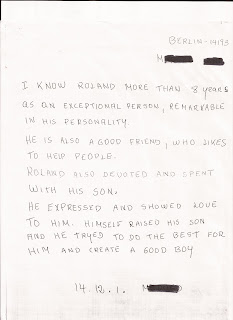 BERLIN-14193
M
I KNOW ROLAND MORE THAN 8 years
as an EXCEPTIONAL PERSON, REMARKABLE
IN HIS PERSONALITY.
HE IS ALSO A GOOD FRIEND, WHO LIKES
TO HELP PEOPLE.
ROLAND ALSO DEVOTED AND SPENT
WITH HIS SON.
HE EXPRESSED AND SHOWED LOVE
TO HIM. HIMSELF RAISED HIS SON
AND HE TRYED TO DO THE BEST FOR
HIM AND CREATE A GOOD BOY
14.12.1. M